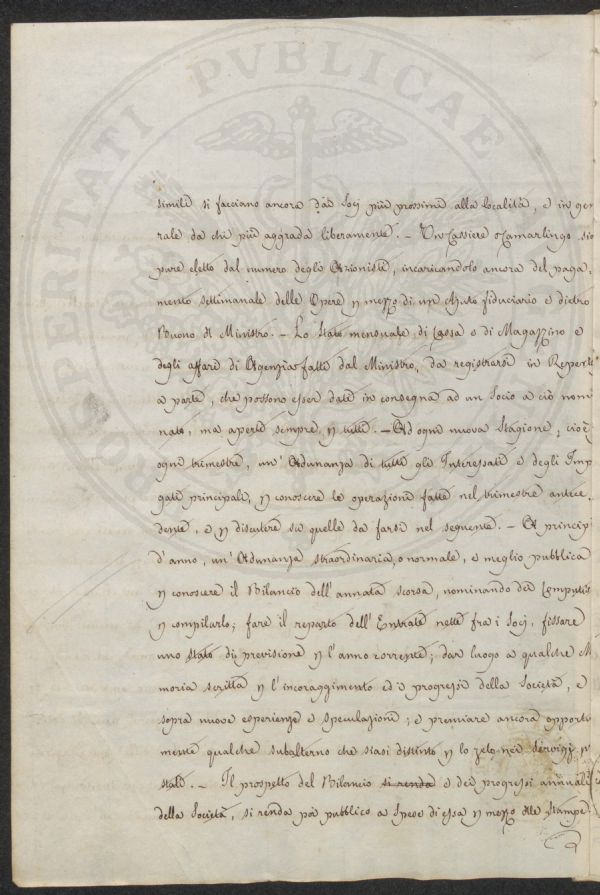 simili si facciano ancora dai Socj più prossimi alla località, e in gen
rale da chi più aggrada liberamente. - Un Cassiere o Camarlingo sia
pure eletto dal numero degli Azionisti, incaricandolo ancora del paga-
mento settimanale delle Opere p mezzo di un Ajuto fiduciario e dietro
Buono del Ministro. - Lo Stato mensuale di Cassa e di Magazzino e
degli affari di Agenzia fatti dal Ministro, da registrarsi in Reperti
a parte, che possono esser dati in consegna ad un Socio a ciò nomi
nato, ma aperti sempre p tutti. - Ad ogni nuova Stagione, cioè
ogni trimestre, un' Adunanza di tutti gli Interessati e degli Imp
gati principali, p conoscere le operazioni fatte nel trimestre antece-
dente, e p discutere su quelle da farsi nel seguente. - A princip
d'anno, un' Adunanza straordinaria, o normale, e meglio pubblica
p conoscere il Bilancio dell' annata scorsa, nominando dei Computis
p compilarlo; fare il reparto dell' Entrate nette fra i Socj, fissare
uno stato di previsione p l'anno corrente; dar luogo a qualche M
moria scritta p l'incoraggimento ed i progressi della Società, e
sopra nuove esperienze e speculazioni; e premiare ancora opportu
mente qualche subalterno che siasi distinto p lo zelo nei servigj p
stati. - Il prospetto del Bilancio si renda e dei progressi annuali
della Società, si renda poi pubblico a Spese di essa p mezzo delle Stampe.
PROSPERITATI PVBLICAE